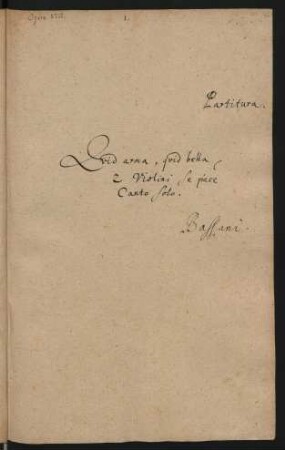 1.
Partitura.
Quid arma, quid bella,
2 Violini se piace
Canto solo.
Bassani.